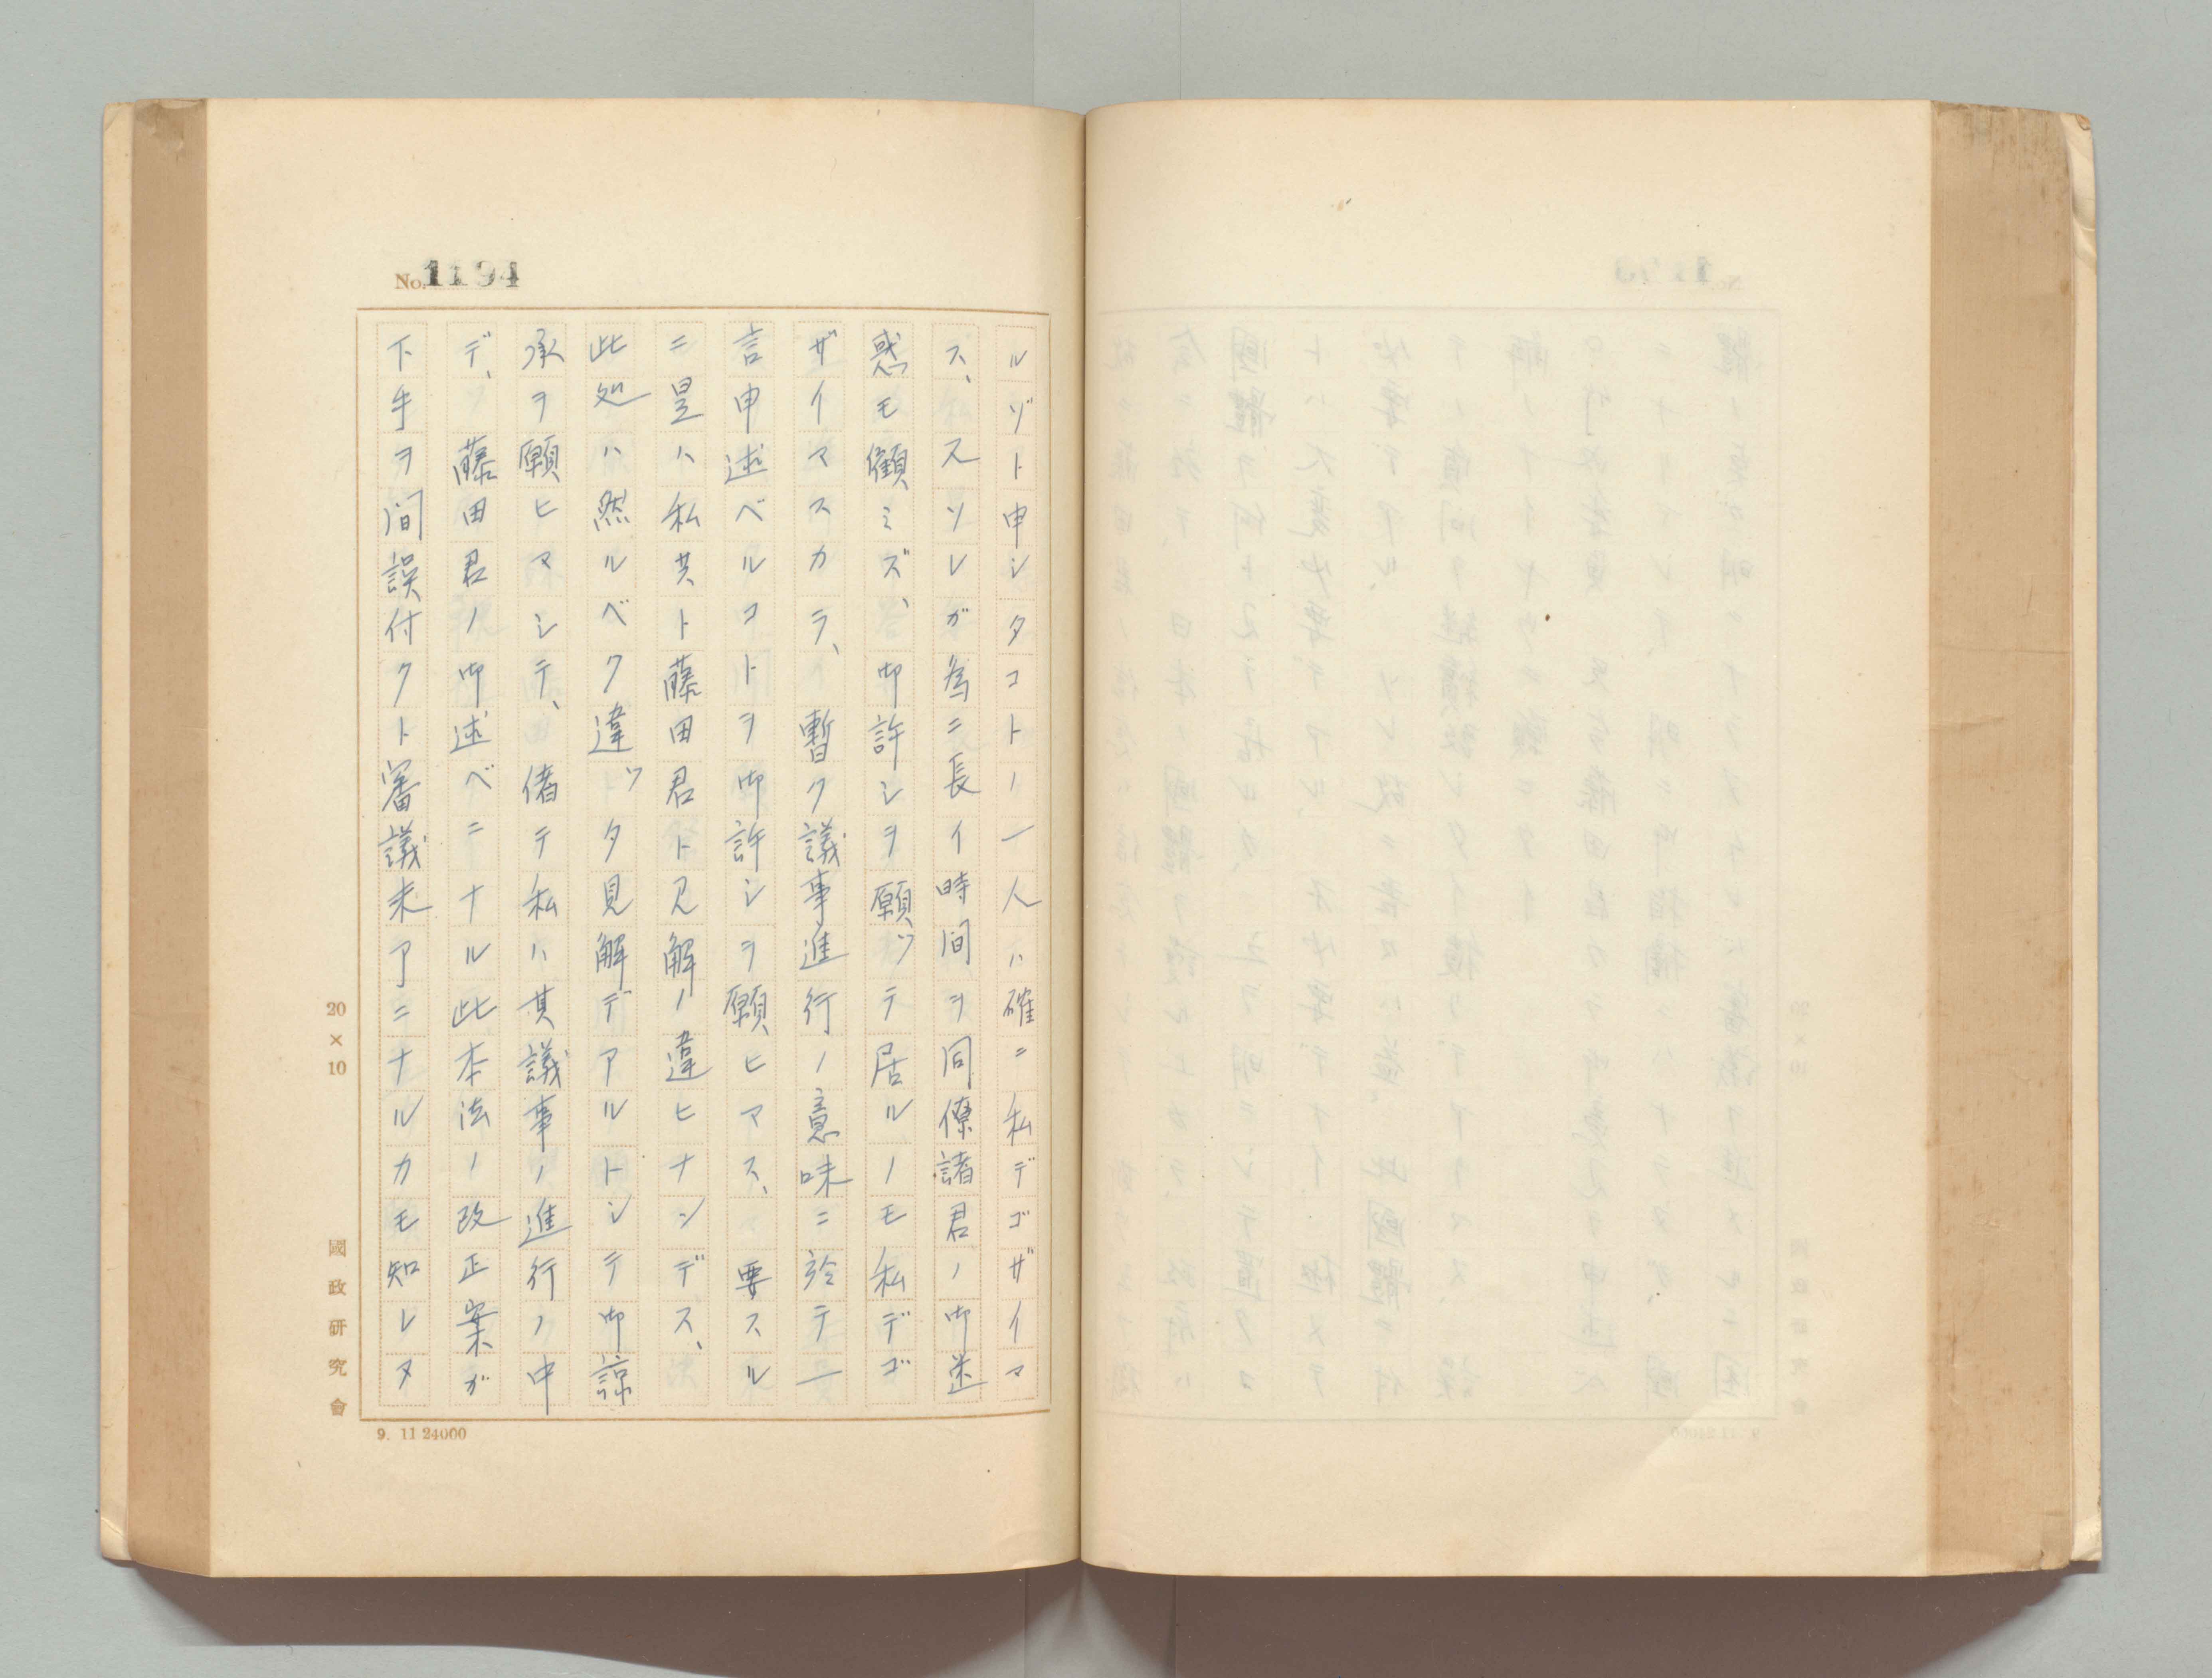 No. 1194
ルゾト申シタコトノ一人ハ確ニ私デゴザイマ
ス、スソレガ為ニ長イ時間ヲ同僚諸君ノ御迷
惑モ顧ミズ、御許シヲ願ッテ居ルノモ私デゴ
ザイマスカラ、暫ク議事進行ノ意味ニ於テ一
言申述ベルコトヲ御許シヲ願ヒマス、要スル
ニ是ハ私共ト藤田君ト見解ノ違ヒナンデス、
此処ハ然ルベク違ッタ見解デアルトシテ御諒
承ヲ願ヒマシテ、偖テ私ハ其議事ノ進行ノ中
デ、藤田君ノ御述ベニナル此本法ノ改正案ガ
下手ヲ間誤付クト審議未了ニナルカモ知レタ
20×10
國政研究會
9. 11 24000